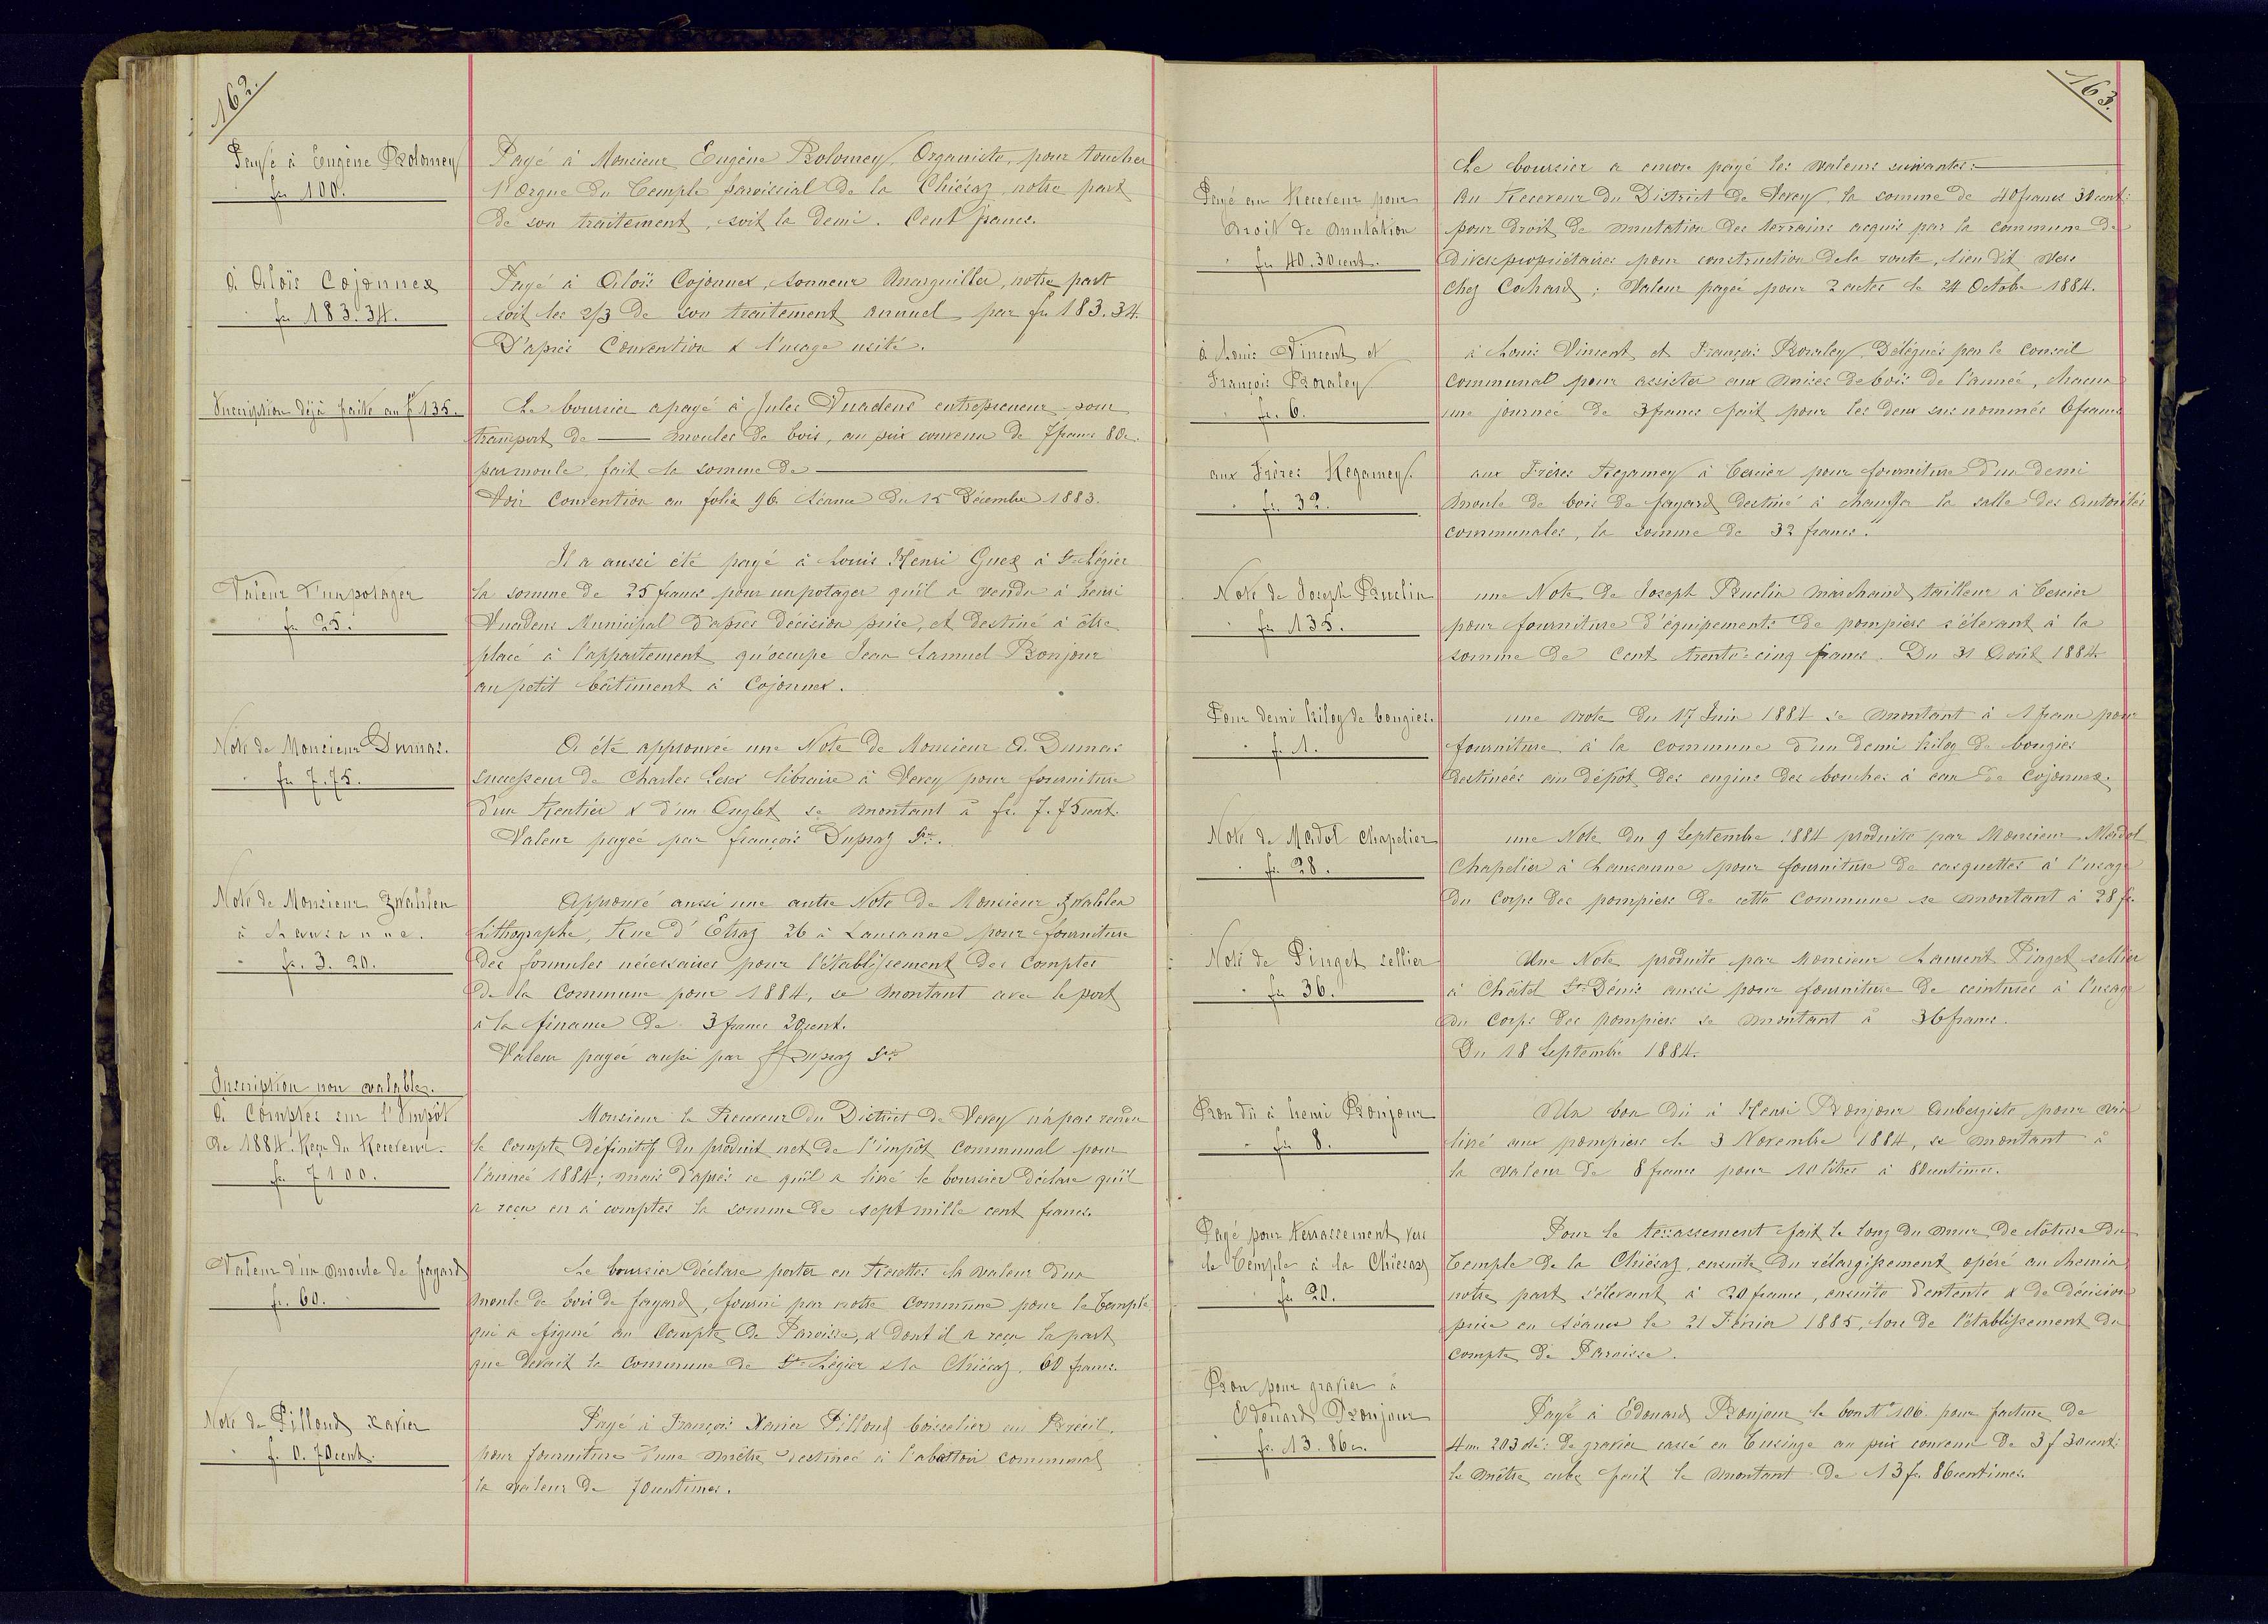 162.
Payé à Eugène Bolomey
fr. 100.
Payé à Monsieur Eugène Bolomey, Organiste, pour toucher
l'Orgue du Temple paroissial de la Chiésaz notre part
de son traitement, soit la demi. Cent francs.
à Aloïs Cojonnex
fr. 183.34.
Payé à Aloïs Cojonnex, sonneur Marguiller, notre part
soit les 2/3 de son traitement annuel par fr. 183.34.
D'après Convention & l'usage usité.
Inscription déjà faite au f° 135.
Le boursier a payé à Jules Vuadens entrepreneur pour
transport de — moules de bois, au prix convenu de 7 francs 80 c.
par moule, fait la somme de —
Voir Convention au folio 96 séance du 15 Décembre 1883.
Valeur d'un potager
fr. 25.
Il a aussi été payé à Louis Henri Guex à St Légier
la somme de 25 francs pour un potager qu'il a vendu à henri
Vuadens Municipal d'après décision prise, et destiné à être
placé à l'appartement qu'occupe Jean Samuel Bonjour
au petit bâtiment à Cojonnex.
Note de Monsieur Dumas.
fr. 7.75.
A été approuvée une Note de Monsieur A. Dumas
successeur de Charles libraire à Vevey pour fourniture
d'un Rentier & d'un Onglet se montant à fr. 7.75 cent.
Valeur payée par françois Dupraz Sre.
Note de Monsieur Zwahlen
à Lausanne.
fr. 3. 20.
Approuvé aussi une autre Note de Monsieur Zwahlen
Lithographe, Rue d'Etraz 26 à Lausanne pour fourniture
des formules nécessaires pour l'établissement des Comptes
de la Commune pour 1884, se montant avec le port
à la finance de 3 francs 20 cent.
Valeur payée aussi par F. Dupraz Sre
Inscription non valable.
à Comptes sur l'Impôt
de 1884. Reçu du Receveur.
fr. 7100.
Monsieur le Receveur du District de Vevey n'a pas rendu
le compte définitif du produit net de l'impôt communal pour
l'année 1884; mais d'après ce qu'il a livré le boursier déclare qu'il
a reçu en à comptes la somme de sept mille cent francs.
Valeur d'un moule de fayard
fr. 60.
Le boursier déclare porter en Recettes la valeur d'un
moule de bois de fayard, fourni par notre commune pour le Temple
qui a figuré au Compte de Paroisse, & dont il a reçu la part
que devait la commune de St Légier & la Chiésaz. 60 francs.
Note de Pilloud Xavier
fr. 0. 70 cent.
Payé à François Xavier Pilloud boisselier au Brésil.
pour fourniture d'une mêtre destinée à l'abattoir communal
la valeur de 70 centimes.
163.
Le boursier a encore payé les valeurs suivantes:
Payé au Receveur pour
Droit de mutation
fr. 40.30 cent.
Au Receveur du District de Vevey la somme de 40 francs 30 cent:
pour droit de mutation des terrains acquis par la commune de
divers propriétaires pour construction de la route, lieu dit vers
chez Cochard; Valeur payée pour 2 actes le 24 Octobre 1884.
à Louis Vincent et
François Bovaley
fr. 6.
à Louis Vincent et François Bovaley, Délégués par le Conseil
communal pour assister aux mises de bois de l'année, chacun
une journée de 3 francs fait pour les deux sus nommés 6 francs
aux Frères Regamey.
fr. 32.
aux Frères Regamey à Tercier pour fourniture d'un demi
moule de bois de fayard destiné à chauffer la salle des Autorités
communales, la somme de 32 francs.
Note de Joseph Buclin
fr. 135.
une Note de Joseph Buclin marchand tailleur à Tercier
pour fourniture d'équipements de pompiers s'élevant à la
somme de Cent trente-cinq francs. Du 31 Août 1884
Pour demi kilog de bougies.
fr. 1.
une note du 17 Juin 1884 se montant à 1 franc pour
fourniture à la commune d'un demi kilog de bougies
destinées au dépôt des engins des bouches à eau de Cojonnex.
Note de Merdol Chapelier
fr. 28.
une Note du 9 Septembre 1884 produite par Monsieur Merdol
Chapelier à Lausanne pour fourniture de casquettes à l'usage
du Corps des pompiers de cette Commune se montant à 28 fr.
Note de Pinget sellier
fr. 36.
Une Note produite par Monsieur Laurent Pinget sellier
à Châtel St. Dénis aussi pour fourniture de ceintures à l'usage
du Corps des pompiers se montant à 36 francs.
Du 18 Septembre 1884.
Bon dû à henri Bonjour
fr. 8.
Un bon dû à Henri Bonjour Aubergiste pour vin
livré aux pompiers le 3 Novembre 1884, se montant à
la valeur de 8 francs pour 10 litres à 80 centimes.
Payé pour Terrassement vers
le Temple à la Chiésaz
fr. 20.
Pour le terrassement fait le long du mur de clôture du
Temple de la Chiésaz, ensuite du rélargissement opéré au chemin
notre part s'élevant à 20 francs, ensuite d'entente & de décision
prise en séance le 21 Février 1885, lors de l'établissement du
compte de Paroisse.
Bon pour gravier à
Edouard Bonjour
fr. 13. 86 c.
Payé à Edouard Bonjour le bon N° 106. pour facture de
4 m. 203 dé: de gravier cassé en Tusinge au prix convenu de 3 f 30 cent:
le mêtre cube fait le montant de 13 fr. 86 centimes.